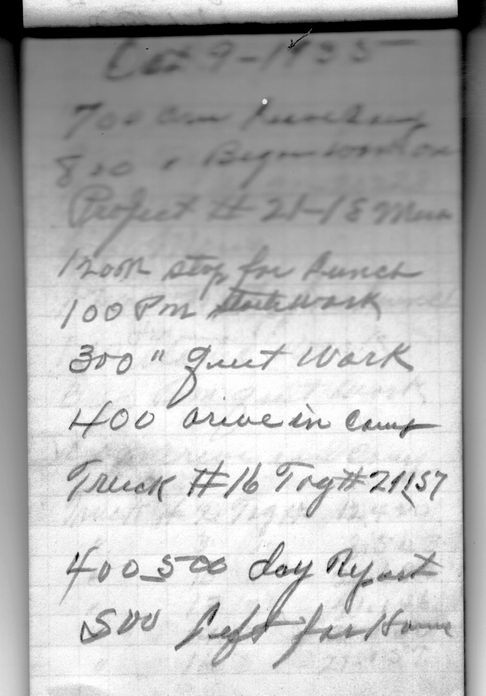 Oct 9-1935
700 am leave Camp
800 " Begin work on
Project # 21-18 Mun
1200 M stop for Lunch
100 PM start work
300 " quit Work
400 arive in Camp
Truck #16 Tag # 21157
400 500 day Report
500 Left for Home